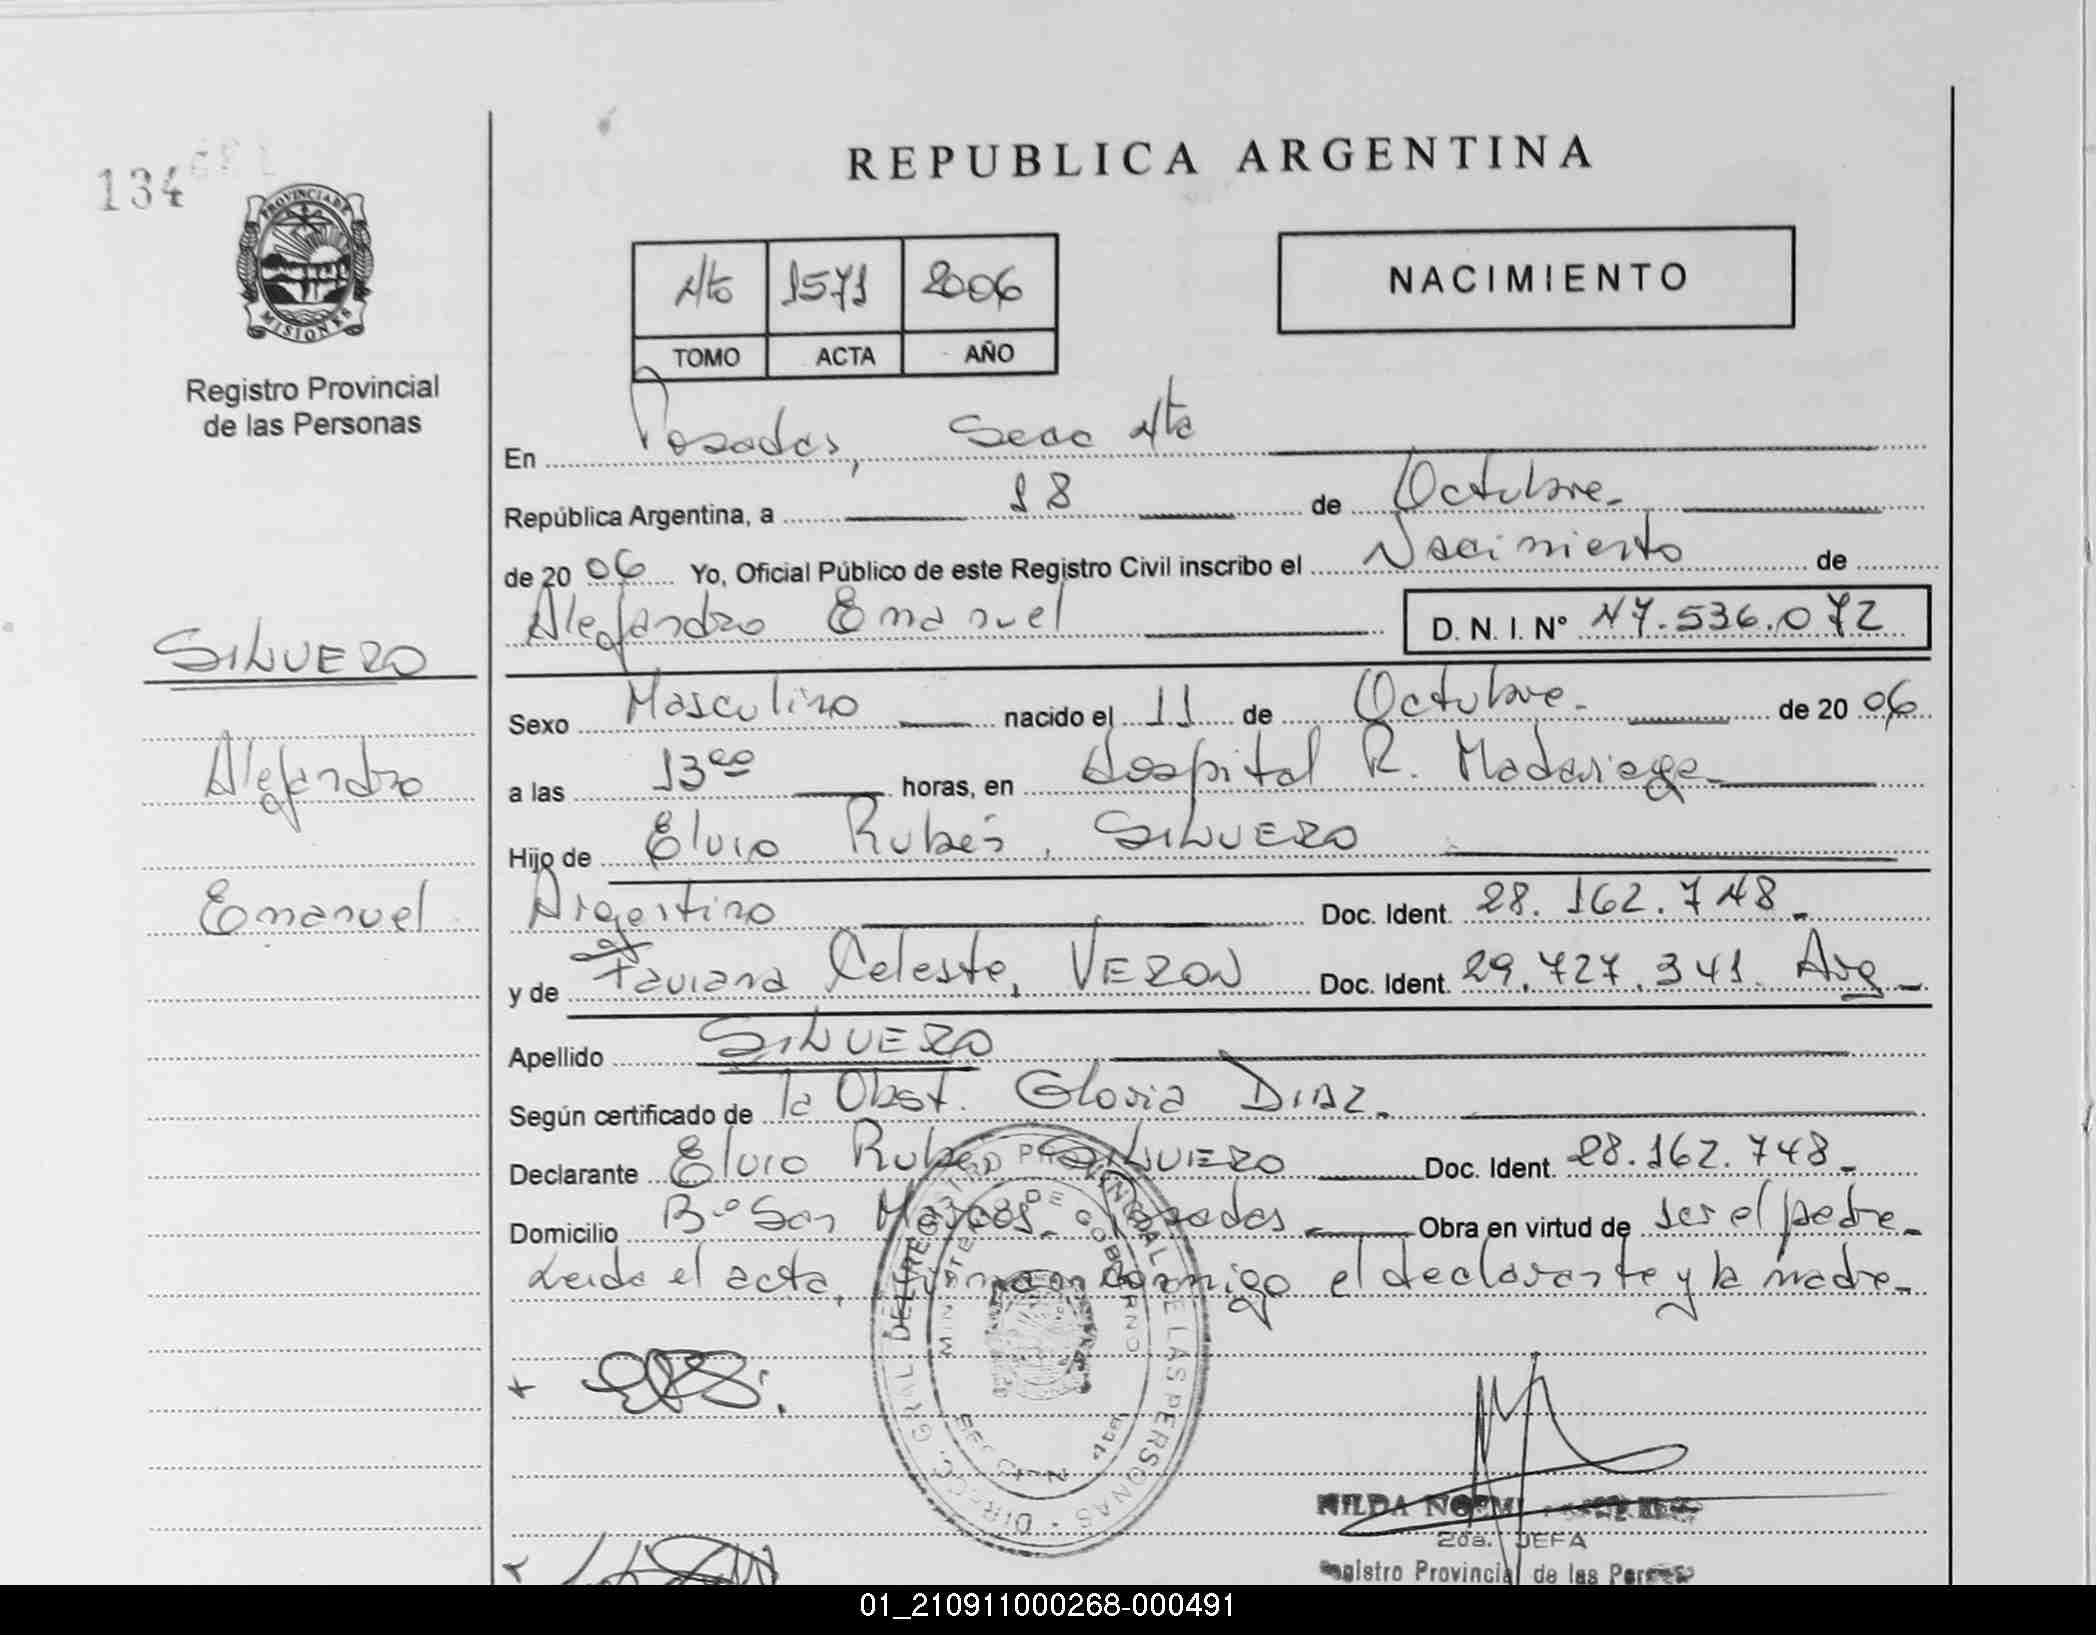 134
PROVINCIA DE
MISIONES
Registro Provincial
de las Personas
REPUBLICA ARGENTINA
4to 1571 2006
TOMO ACTA AÑO
NACIMIENTO
En Posadas, Secc 4ta
República Argentina, a 18 de Octubre
de 2006 Yo, Oficial Público de este Registro Civil inscribo el Nacimiento de
Alejandro Emanuel D. N. I. Nº 47.536.072
SILVERO
Alejandro
Emanuel
Sexo Masculino nacido el 11 de Octubre de 2006
a las 13 00 horas, en Hospital R. Madariaga
Hijo de Elvio Rubén, SILVERO
Argentino Doc. Ident. 28.162.748
y de Faviana Celeste, VERON Doc. Ident. 29.727.341 Arg
Apellido SILVERO
Según certificado de la Obst. Gloria DIAZ
Declarante Elvio Rubén SILVERO Doc. Ident. 28.162.748
Domicilio Bº San Marcos. Posadas Obra en virtud de ser el padre
Leida el acta, firman conmigo el declarante y la madre
DIRECC. GRAL. DEL REGISTRO PROVINCIAL DE LAS PERSONAS
MINISTERIO DE GOBIERNO
SECCION 4ta
HILDA NOEMI
2da. JEFA
Registro Provincial de las Personas
01_210911000268-000491